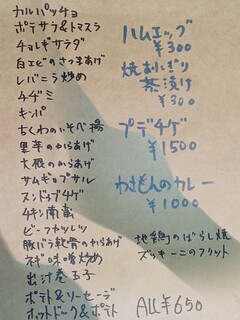 カルパッチョ
ポテサラ&トマスラ
チョレギサラダ
白エビのさつまあげ
レバニラ炒め
チヂミ
キンパ
ちくわのいそべ揚
里芋のからあげ
大根のからあげ
サムギョプサル
スンドゥブチゲ
チキン南蛮
ビーフカツレツ
豚バラ軟骨のからあげ
ネギ味噌炒め
出汁巻玉子
ポテト&ソーセージ
ホットドック&ポテト
ハムエッグ
¥300
焼おにぎり
茶漬け
¥300
プデチゲ
¥1500
わきもんのカレー
¥1000
地鶏のばらし焼
ズッキーニのフリット
ALL¥650